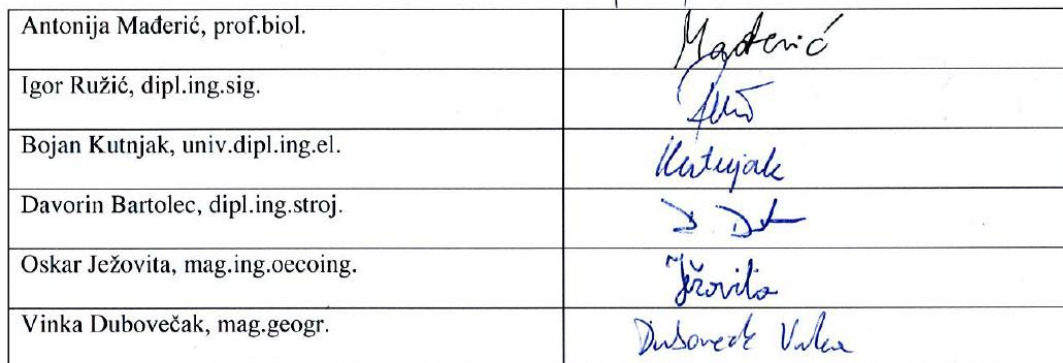 Antonija Mađerić, prof.biol. Mađerić
Igor Ružić, dipl.ing.sig.
Bojan Kutnjak, univ.dipl.ing.el. Kutnjak
Davorin Bartolec, dipl.ing.stroj.
Oskar Ježovita, mag.ing.oecoing. Ježovita
Vinka Dubovečak, mag.geogr.